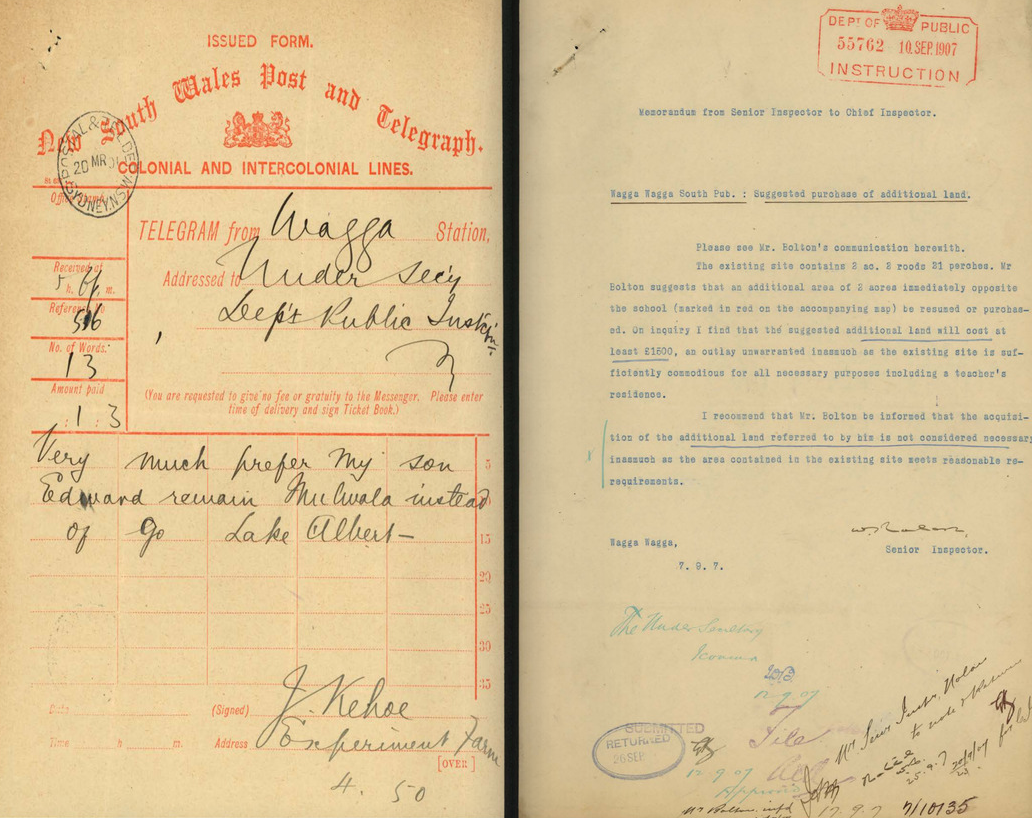 ISSUED FORM.
New South Wales Post and Telegraph.
COLONIAL AND INTERCOLONIAL LINES.
20 MR
SYDNEY N.S.W.
TELEGRAM from Wagga Station,
Addressed to Under Secy
Dept Public Instn
Received at
5 h. m.
Reference to
516
No. of Words.
13
Amount paid
: 1 : 3
(You are requested to give no fee or gratuity to the Messenger. Please enter
time of delivery and sign Ticket Book.)
Very much prefer my son
5
Edward remain Mulwala instead
of go Lake Albert —
15
20
25
30
35
Date (Signed) J. Kehoe
Time h m. Address Experiment Farm
[OVER]
4. 50
DEPT OF PUBLIC
55762 10 SEP 1907
INSTRUCTION
Memorandum from Senior Inspector to Chief Inspector.
Wagga Wagga South Pub. : Suggested purchase of additional land.
Please see Mr. Bolton's communication herewith.
The existing site contains 2 ac. 2 roods 21 perches. Mr
Bolton suggests that an additional area of 2 acres immediately opposite
the school (marked in red on the accompanying map) be resumed or purchas-
ed. On inquiry I find that the suggested additional land will cost at
least £1500, an outlay unwarranted inasmuch as the existing site is suf-
ficiently commodious for all necessary purposes including a teacher's
residence.
I recommend that Mr. Bolton be informed that the acquisi-
tion of the additional land referred to by him is not considered necessary
inasmuch as the area contained in the existing site meets reasonable re-
requirements.
Wagga Wagga,
Senior Inspector.
7. 9. 7.
The Under Secretary
12.9.07
File
SUBMITTED
RETURNED
26 SEP
12 9 07
Approved
Mr Senr Inspr. Nolan
to note & Return
25.9.7
20/9/07
Mr Bolton infd
17.9.7
7/10135